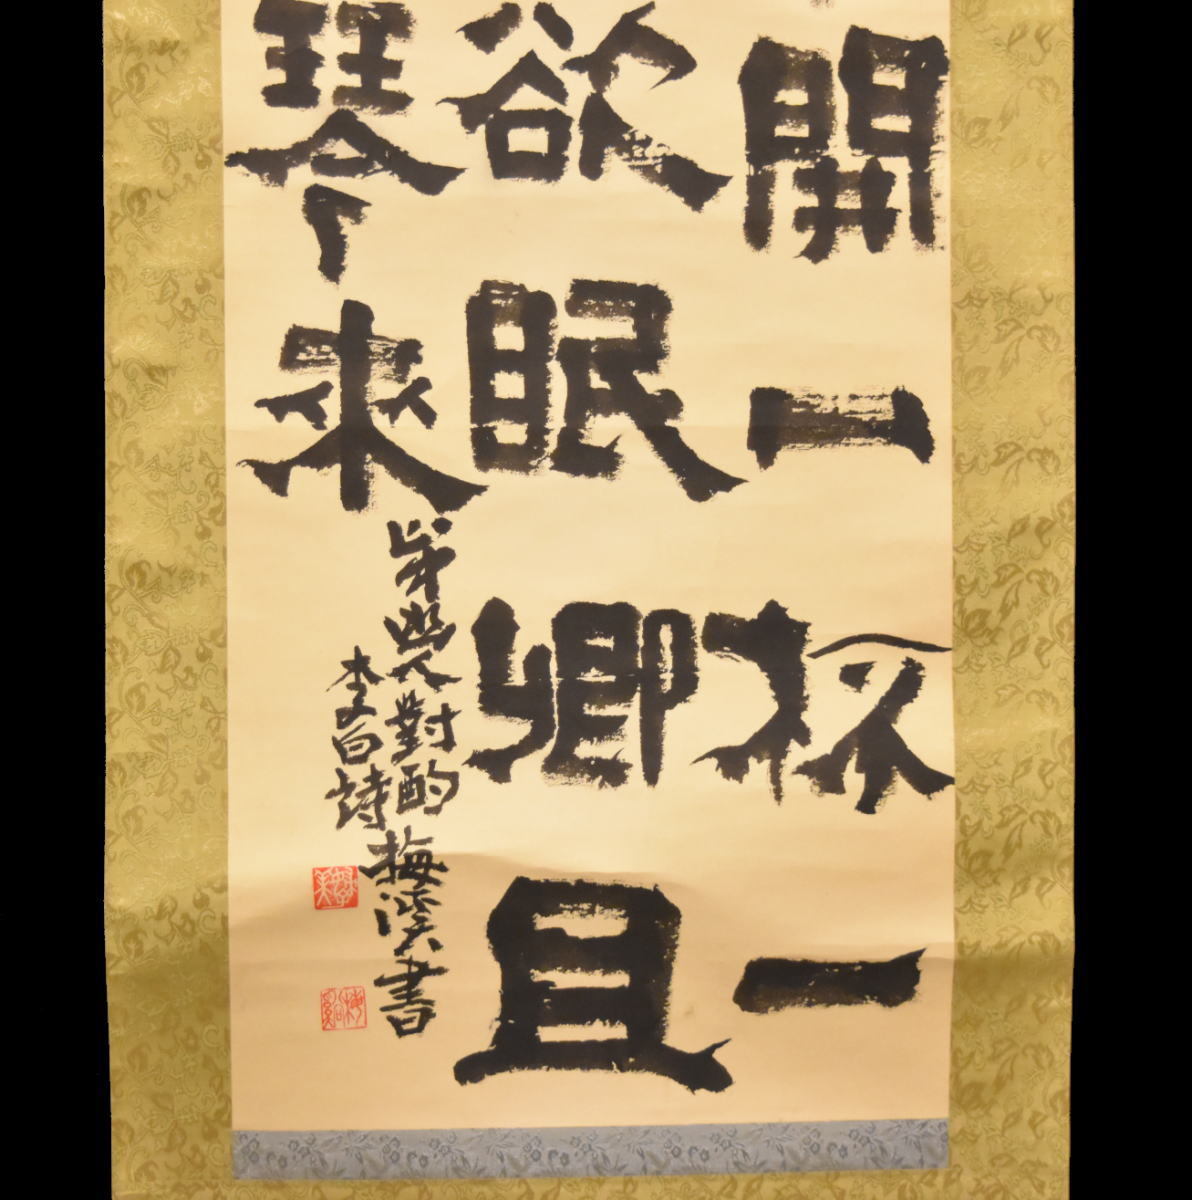 開一杯一
欲眠卿且
琴來
幽人對酌 梅溪書
李白詩
梅谿